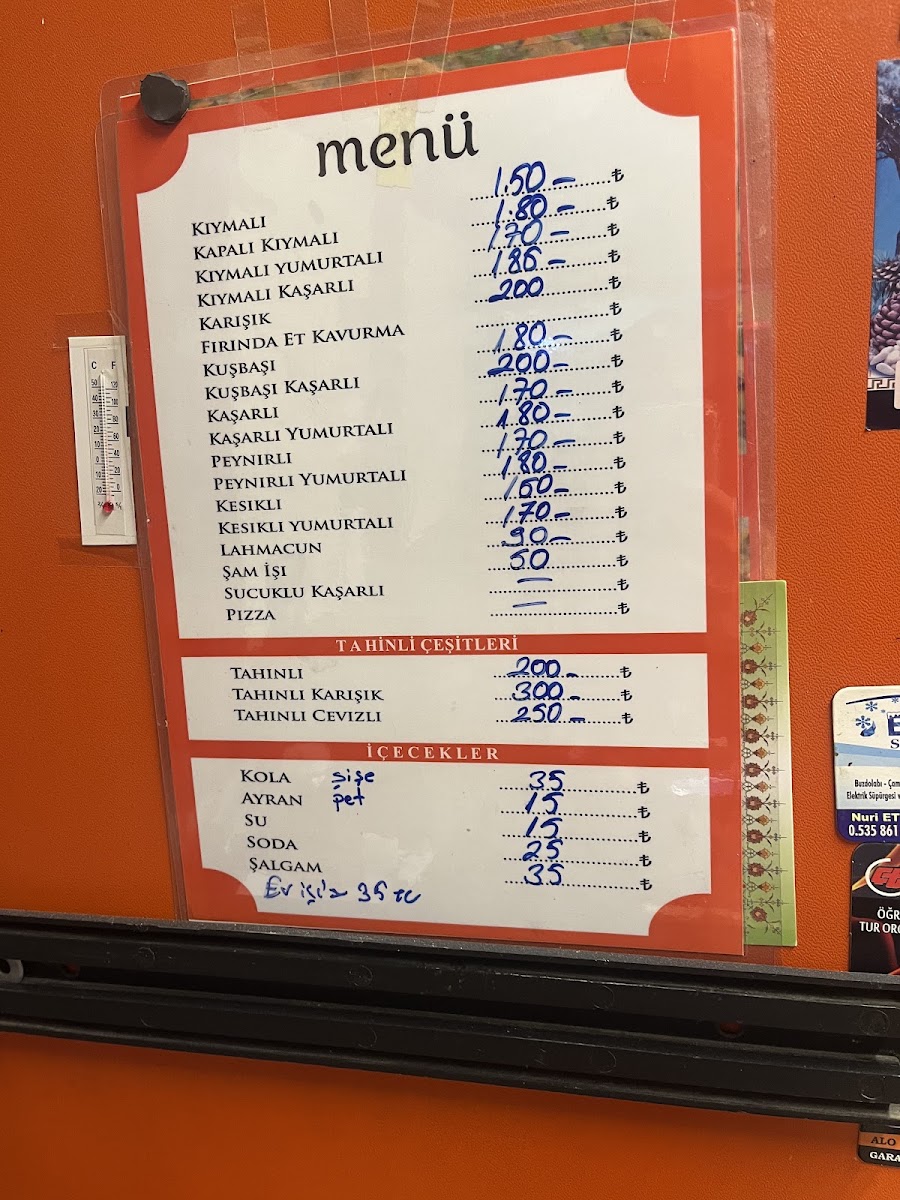 menü
KIYMALI 1.50 – ₺
KAPALI KIYMALI 1.80 – ₺
KIYMALI YUMURTALI 170 – ₺
KIYMALI KAŞARLI 185 – ₺
KARIŞIK 200 ₺
FIRINDA ET KAVURMA ₺
KUŞBAŞI 180 – ₺
KUŞBAŞI KAŞARLI 200 – ₺
KAŞARLI 170 – ₺
KAŞARLI YUMURTALI 180 – ₺
PEYNIRLI 170 – ₺
PEYNIRLI YUMURTALI 180 – ₺
KESIKLI 160 – ₺
KESIKLI YUMURTALI 170 – ₺
LAHMACUN 90 – ₺
ŞAM İŞI 50 ₺
SUCUKLU KAŞARLI — ₺
PIZZA — ₺
TAHİNLİ ÇEŞİTLERİ
TAHINLI 200 – ₺
TAHINLI KARIŞIK 300 – ₺
TAHINLI CEVIZLI 250 – ₺
İÇECEKLER
KOLA şişe 35 ₺
AYRAN pet 15 ₺
SU 15 ₺
SODA 25 ₺
ŞALGAM 35 ₺
35 TL
C F
Buzdolabı - Çam
Elektrik Süpürgesi v
Nuri ET
0.535 861
ÖĞR
TUR ORG
ALO
GARA